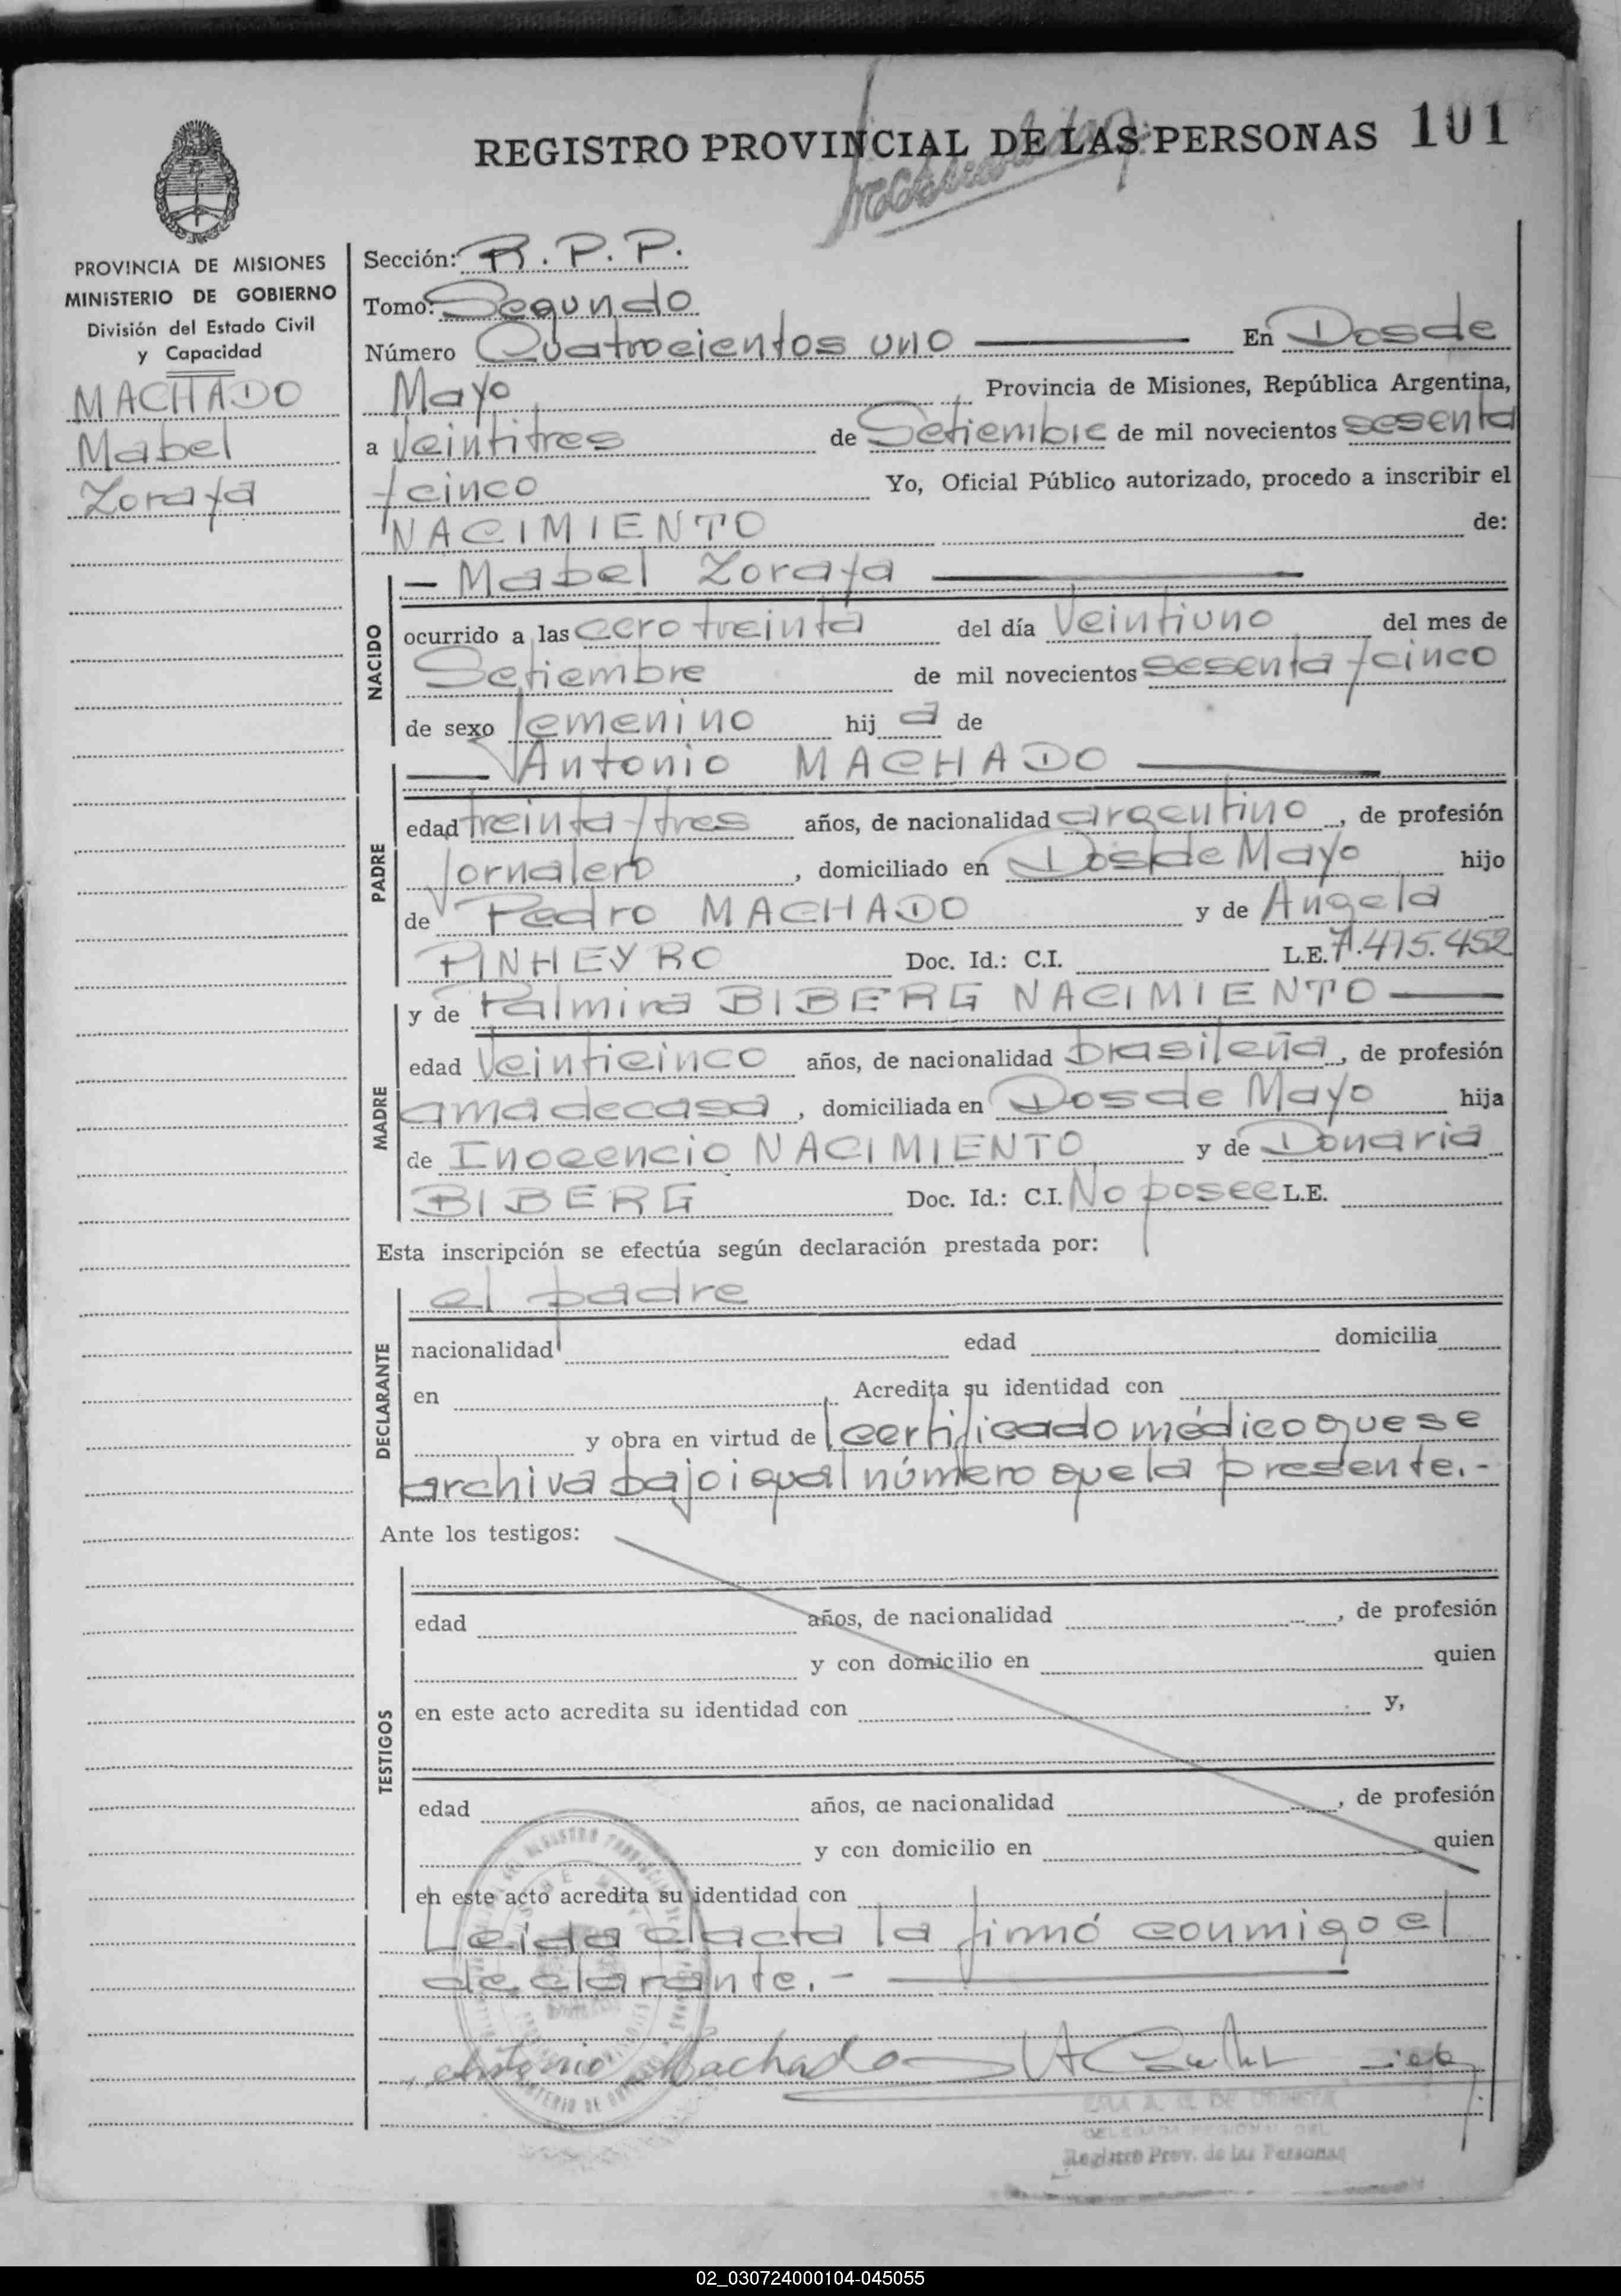 REGISTRO PROVINCIAL DE LAS PERSONAS 101
PROVINCIA DE MISIONES
MINISTERIO DE GOBIERNO
División del Estado Civil
y Capacidad
MACHADO
Mabel
Zoraya
Sección: R.P.P.
Tomo: Segundo
Número Quatrocientos uno En Dos de
Mayo Provincia de Misiones, República Argentina,
a Veintitres de Setiembre de mil novecientos sesenta
y cinco Yo, Oficial Público autorizado, procedo a inscribir el
NACIMIENTO de:
NACIDO
— Mabel Zoraya
ocurrido a las cero treinta del día Veintiuno del mes de
Setiembre de mil novecientos sesenta y cinco
de sexo femenino hij a de
PADRE
Antonio MACHADO
edad treinta y tres años, de nacionalidad argentino, de profesión
Jornalero, domiciliado en Dos de Mayo hijo
de Pedro MACHADO y de Angela
PINHEYRO Doc. Id.: C.I. L.E. 7.475.452
MADRE
y de Palmira BIBERG NACIMIENTO
edad Veinticinco años, de nacionalidad brasileña, de profesión
ama de casa, domiciliada en Dos de Mayo hija
de Inocencio NACIMIENTO y de Donaria
BIBERG Doc. Id.: C.I. No posee L.E.
Esta inscripción se efectúa según declaración prestada por:
DECLARANTE
el padre
nacionalidad edad domicilia
en Acredita su identidad con
y obra en virtud de certificado médico que se
archiva bajo igual número que la presente.-
Ante los testigos:
TESTIGOS
edad años, de nacionalidad, de profesión
y con domicilio en quien
en este acto acredita su identidad con y,
edad años, de nacionalidad, de profesión
y con domicilio en quien
en este acto acredita su identidad con
Leida el acta la firmó conmigo el
declarante.-
Antonio Machado
Registro Prov. de las Personas
02_030724000104-045055